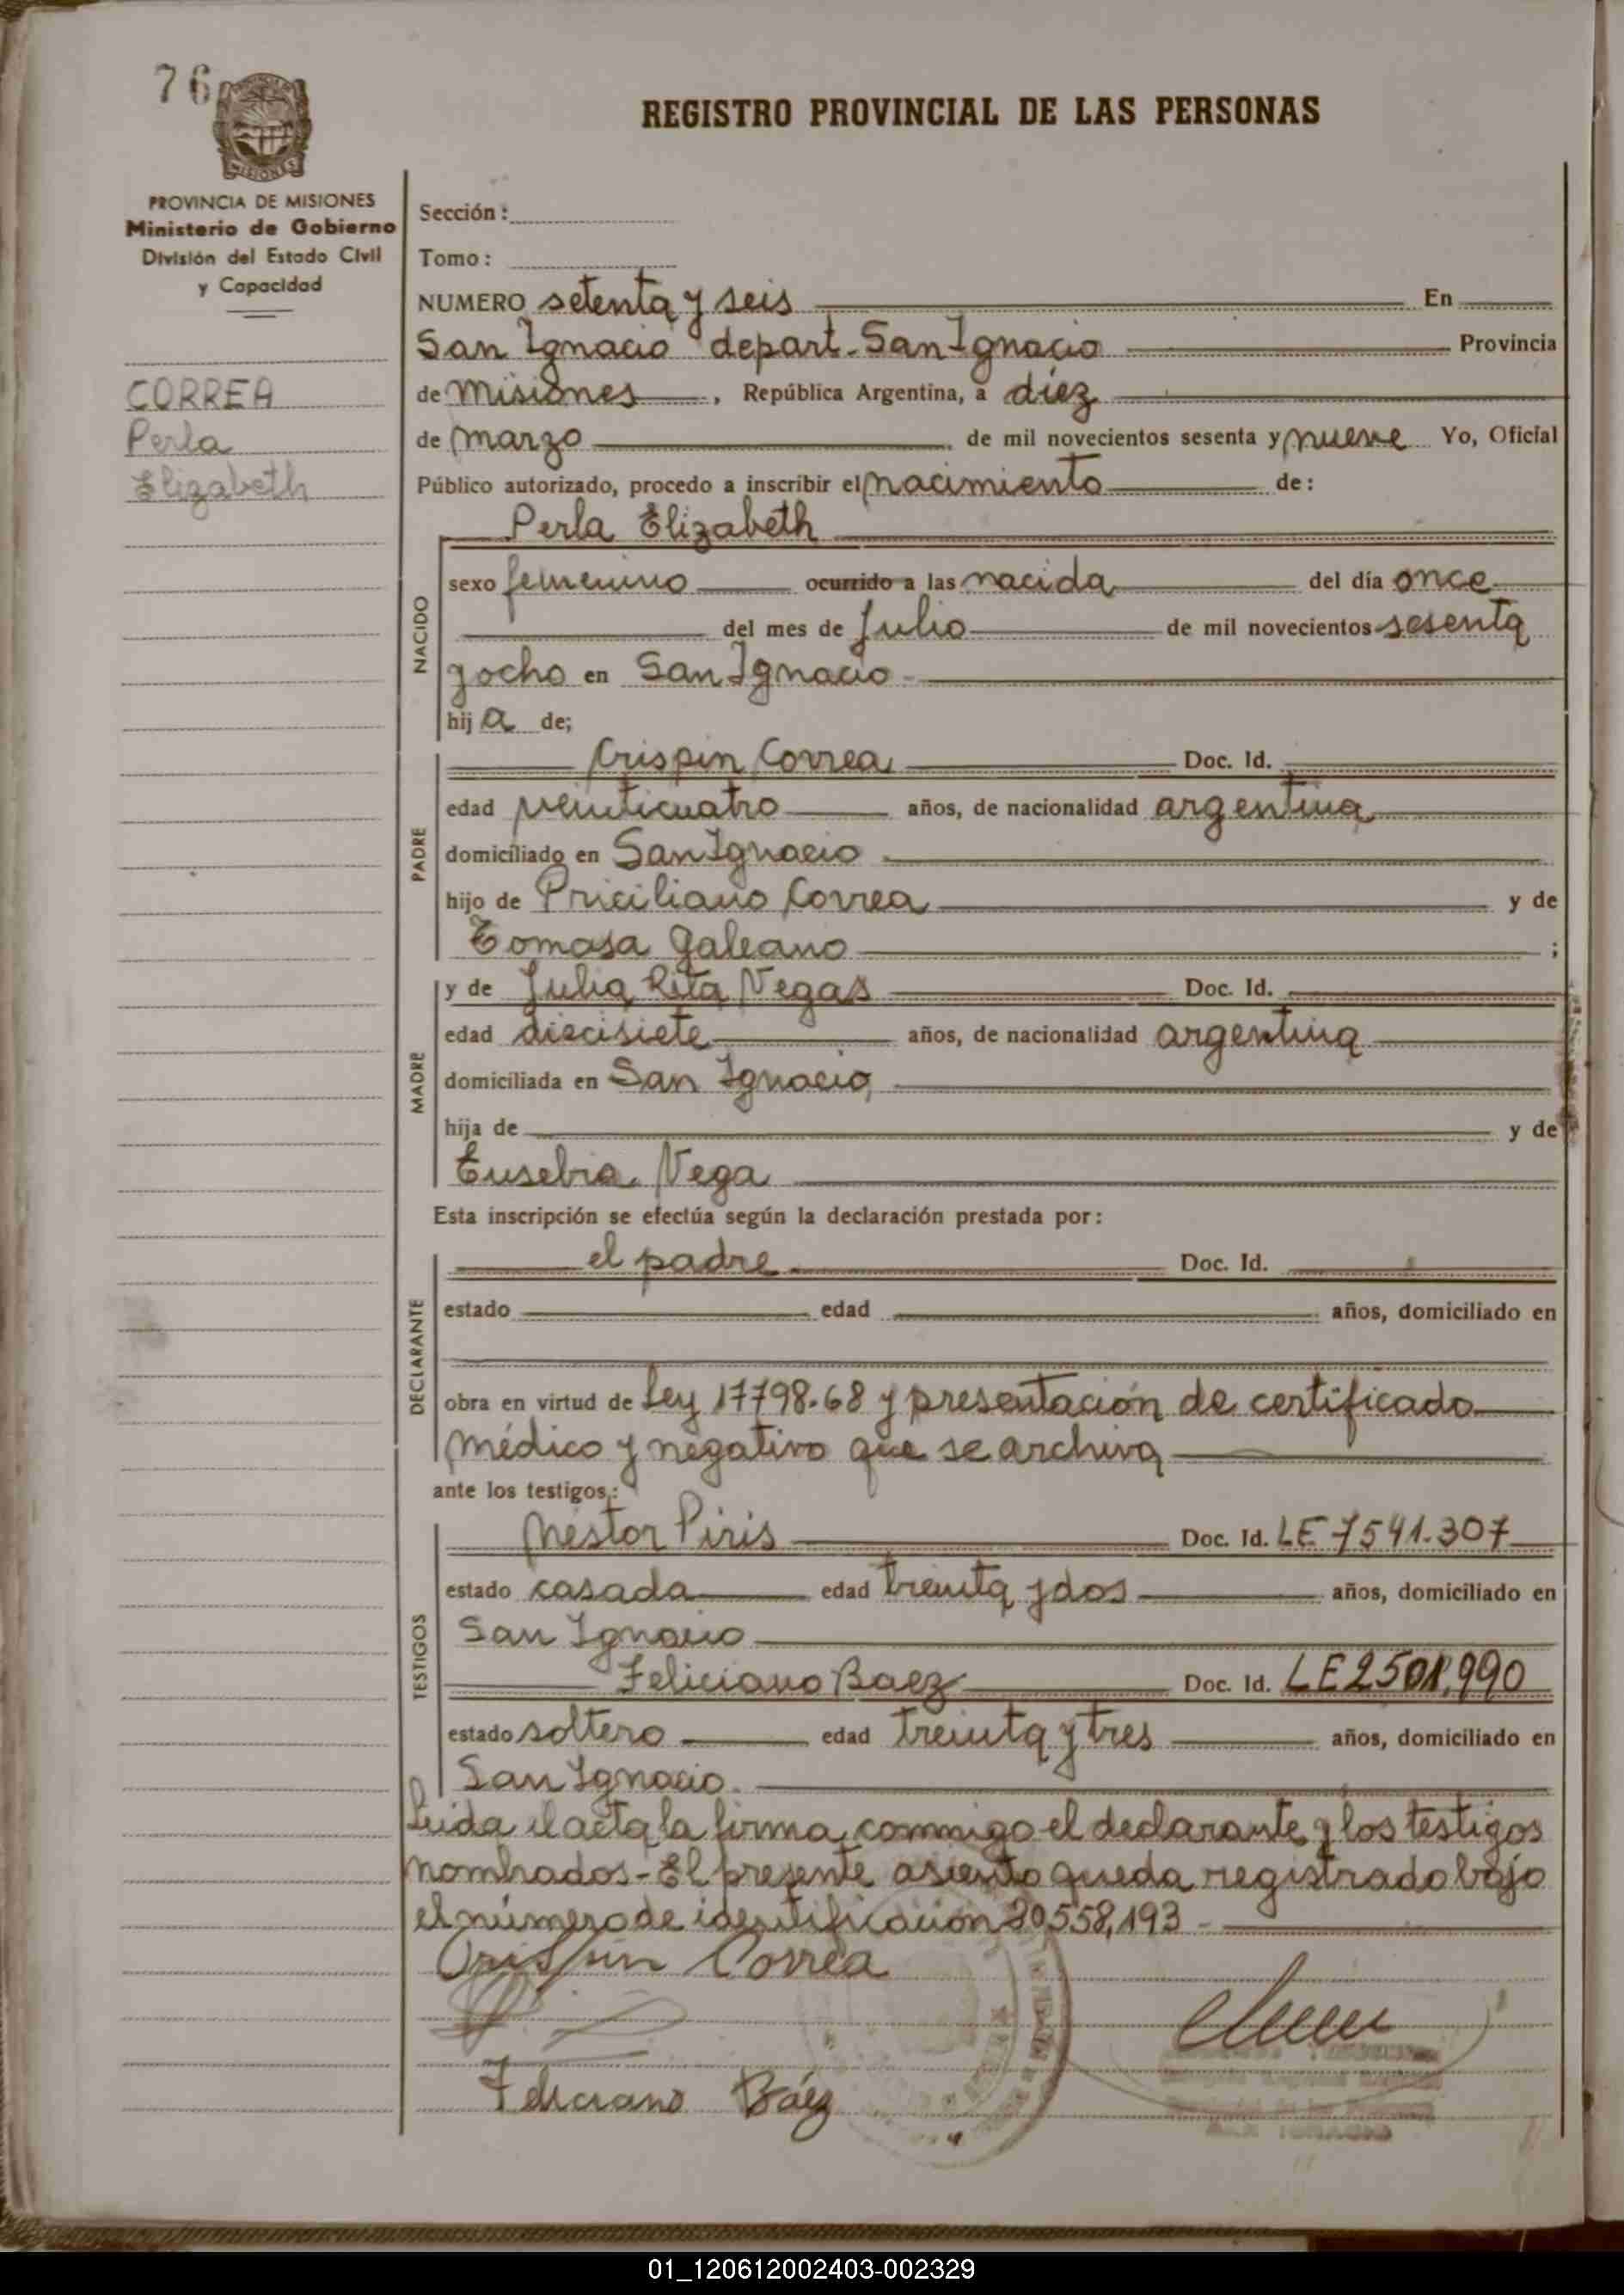 76
MISIONES
PROVINCIA DE MISIONES
Ministerio de Gobierno
División del Estado Civil
y Capacidad
CORREA
Perla
Elizabeth
REGISTRO PROVINCIAL DE LAS PERSONAS
Sección:
Tomo:
NUMERO setenta y seis En
San Ignacio depart. San Ignacio Provincia
de Misiones, República Argentina, a diez
de marzo de mil novecientos sesenta y nueve Yo, Oficial
Público autorizado, procedo a inscribir el nacimiento de:
Perla Elizabeth
NACIDO
sexo femenino ocurrido a las nacida del día once
del mes de Julio de mil novecientos sesenta
y ocho en San Ignacio
hija de;
PADRE
Crispin Correa Doc. Id.
edad veinticuatro años, de nacionalidad argentina
domiciliado en San Ignacio
hijo de Priciliano Correa y de
Tomasa Galeano ;
MADRE
y de Julia Rita Vegas Doc. Id.
edad diecisiete años, de nacionalidad argentina
domiciliada en San Ignacio
hija de y de
Eusebia Vega
Esta inscripción se efectúa según la declaración prestada por:
DECLARANTE
el padre Doc. Id.
estado edad años, domiciliado en
obra en virtud de Ley 17798-68 y presentación de certificado
médico y negativo que se archiva
ante los testigos:
TESTIGOS
Nestor Piris Doc. Id. LE 7541.307
estado casada edad treinta y dos años, domiciliado en
San Ignacio
Feliciano Baez Doc. Id. LE 2501.990
estado soltero edad treinta y tres años, domiciliado en
San Ignacio
Leida el acta la firma conmigo el declarante y los testigos
nombrados - El presente asiento queda registrado bajo
el número de identificación 20,558,193 -
Crispin Correa
Feliciano Báez
SAN IGNACIO
01_120612002403-002329